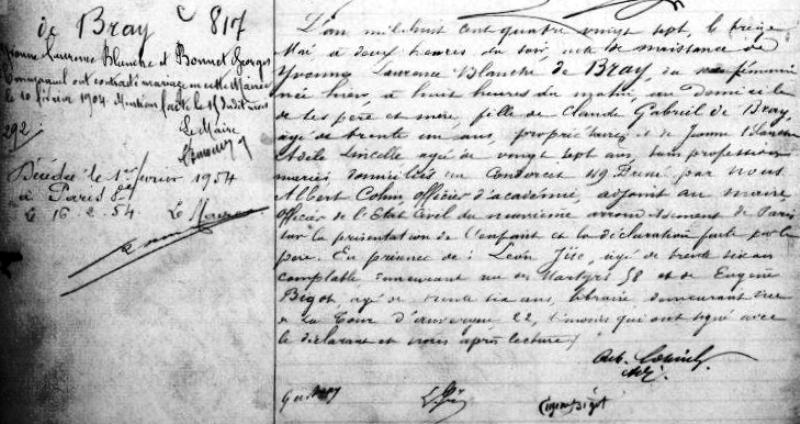 de Bray
817
Yvonne Laurence Blanche et Bonnet Georges
ont contracté mariage en cette Mairie
le 10 février 1904. Mention faite le
Le Maire
292
Décédée le 1er février 1954
à Paris 8e
le 16.2.54 Le Maire
L'an mil huit cent quatre vingt sept, le treize
Mai à deux heures du soir, acte de naissance de
Yvonne Laurence Blanche de Bray, du sexe féminin
née hier, à huit heures du matin, au domicile
de ses père et mère, fille de Claude Gabriel de Bray,
âgé de trente un ans, propriétaire, et de Jeanne Blanche
Adèle Lincelle agée de vingt sept ans, sans profession
mariés, domiciliés rue Condorcet 49. Dressé par nous
Albert Cohn, officier d'académie, adjoint au maire,
officier de l'Etat Civil du neuvième arrondissement de Paris
sur la présentation de l'enfant et la déclaration faite par le
père. En présence de : Léon agé de trente six ans
comptable, demeurant rue des Martyrs 58 et de Eugène
Bigot, agé de trente six ans, libraire, demeurant rue
de La Tour d'auvergne 22, témoins qui ont signé avec
le déclarant et nous après lecture.
Eugène Bigot